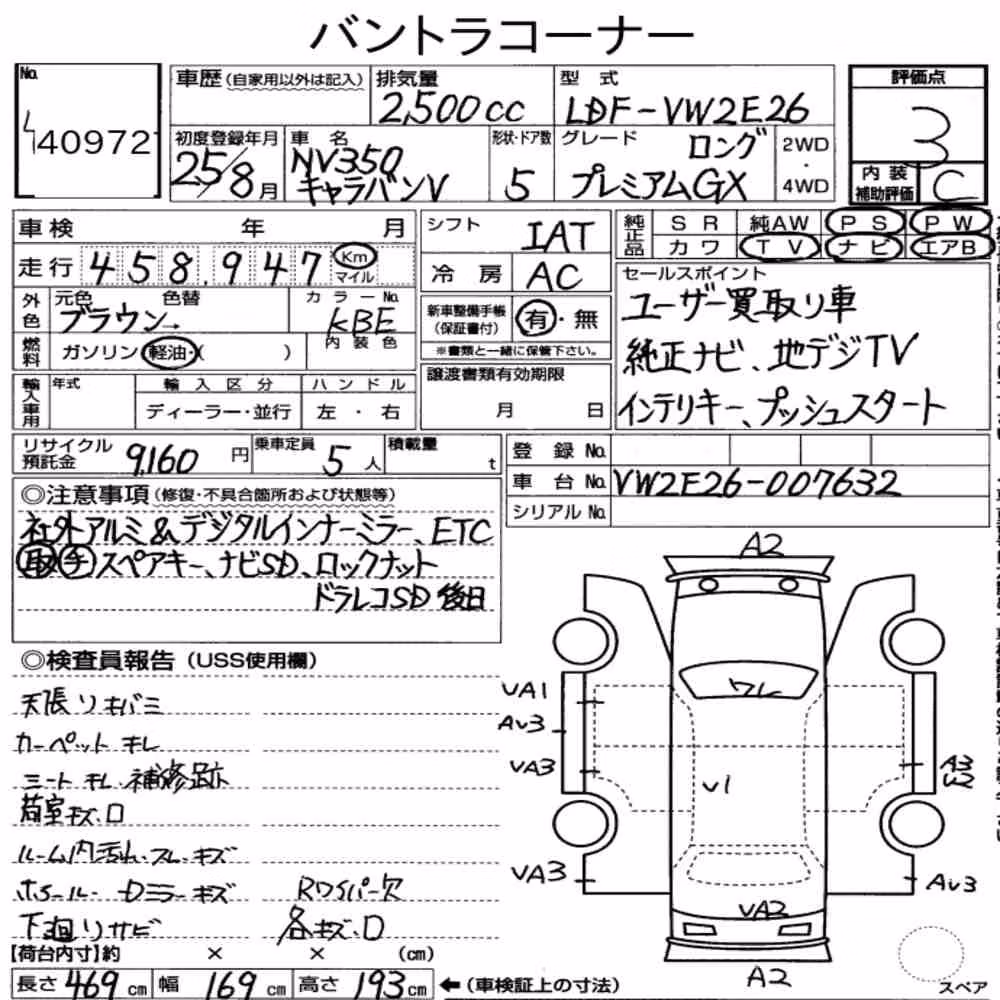 バントラコーナー
No.
40972
車歴 (自家用以外は記入)
排気量
2,500cc
型式
LDF-VW2E26
評価点
3
初度登録年月
25/8月
車名
NV350
キャラバンV
形状・ドア数
5
グレード
ロング
プレミアムGX
2WD
・
4WD
内装
補助評価
C
車検 年 月
走行 458.947 Km
マイル
シフト
IAT
冷房 AC
純正品
SR 純AW PS PW
カワ TV ナビ エアB
外色
元色 色替
ブラウン→
カラーNo.
KBE
新車整備手帳
(保証書付)
有・無
※書類と一緒に保管下さい。
セールスポイント
ユーザー買取り車
純正ナビ、地デジTV
インテリキー、プッシュスタート
燃料
ガソリン・軽油・( )
内装色
輸入車用
年式
輸入区分
ディーラー・並行
ハンドル
左・右
譲渡書類有効期限
月 日
リサイクル
預託金
9,160円
乗車定員
5人
積載量
t
登録No.
車台No. VW2E26-007632
シリアルNo.
◎注意事項(修復・不具合箇所および状態等)
社外アルミ&デジタルインナーミラー、ETC
取 チ スペアキー、ナビSD、ロックナット
ドラレコSD 後日
◎検査員報告(USS使用欄)
天張りキバミ
カーペット キレ
シート キレ・補修跡
荷室キズ、ロ
ルーム内汚れ・スレ・キズ
ホイール・Dミラーキズ
Rワイパー欠
下廻りサビ
各キズ、ロ
A2
ワレ
VA1
AU3
VA3
V1
A3
W2
VA3
AU3
VA2
A2
スペア
【荷台内寸】約 × × (cm)
長さ 469cm 幅 169cm 高さ 193cm ←(車検証上の寸法)